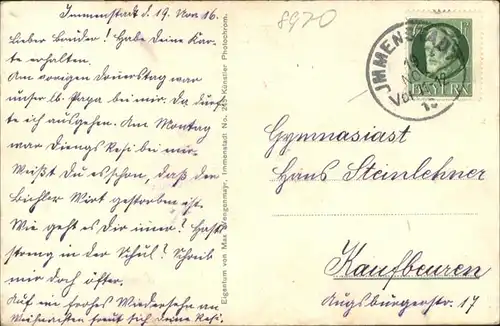 Immenstadt d. 19. Nov 16.
Lieber Bruder! Habe Deine Kar-
te erhalten.
Am vorigen Donnerstag war
unser lb. Papa bei mir. Da durf-
te ich ausgehen. Am Montag
war Resi bei mir.
Weißt Du es schon, daß der
Bichler Wirt gestorben ist.
Wie geht es Dir immer? Hast
streng in der Schul? Schreib
mir doch öfter.
Auf ein frohes Wiedersehn an
Weihnachten freut sich Deine Resi.
Eigentum von Max Wengenmayr, Immenstadt No. 264 Künstler Photochrom.
8970
IMMENSTADT
19
NOV
Vorm
BAYERN
Gymnasiast
Hans Steinlehner
Kaufbeuren
Augsburgerstr. 17